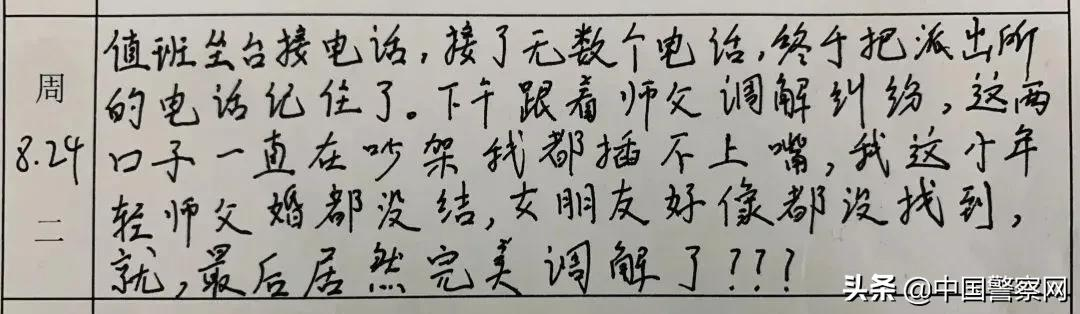 周
8.24
二
值班坐台接电话,接了无数个电话,终于把派出所
的电话记住了。下午跟着师父调解纠纷,这两
口子一直在吵架我都插不上嘴,我这小年
轻师父婚都没结,女朋友好像都没找到,
就,最后居然完美调解了???
头条 @中国警察网